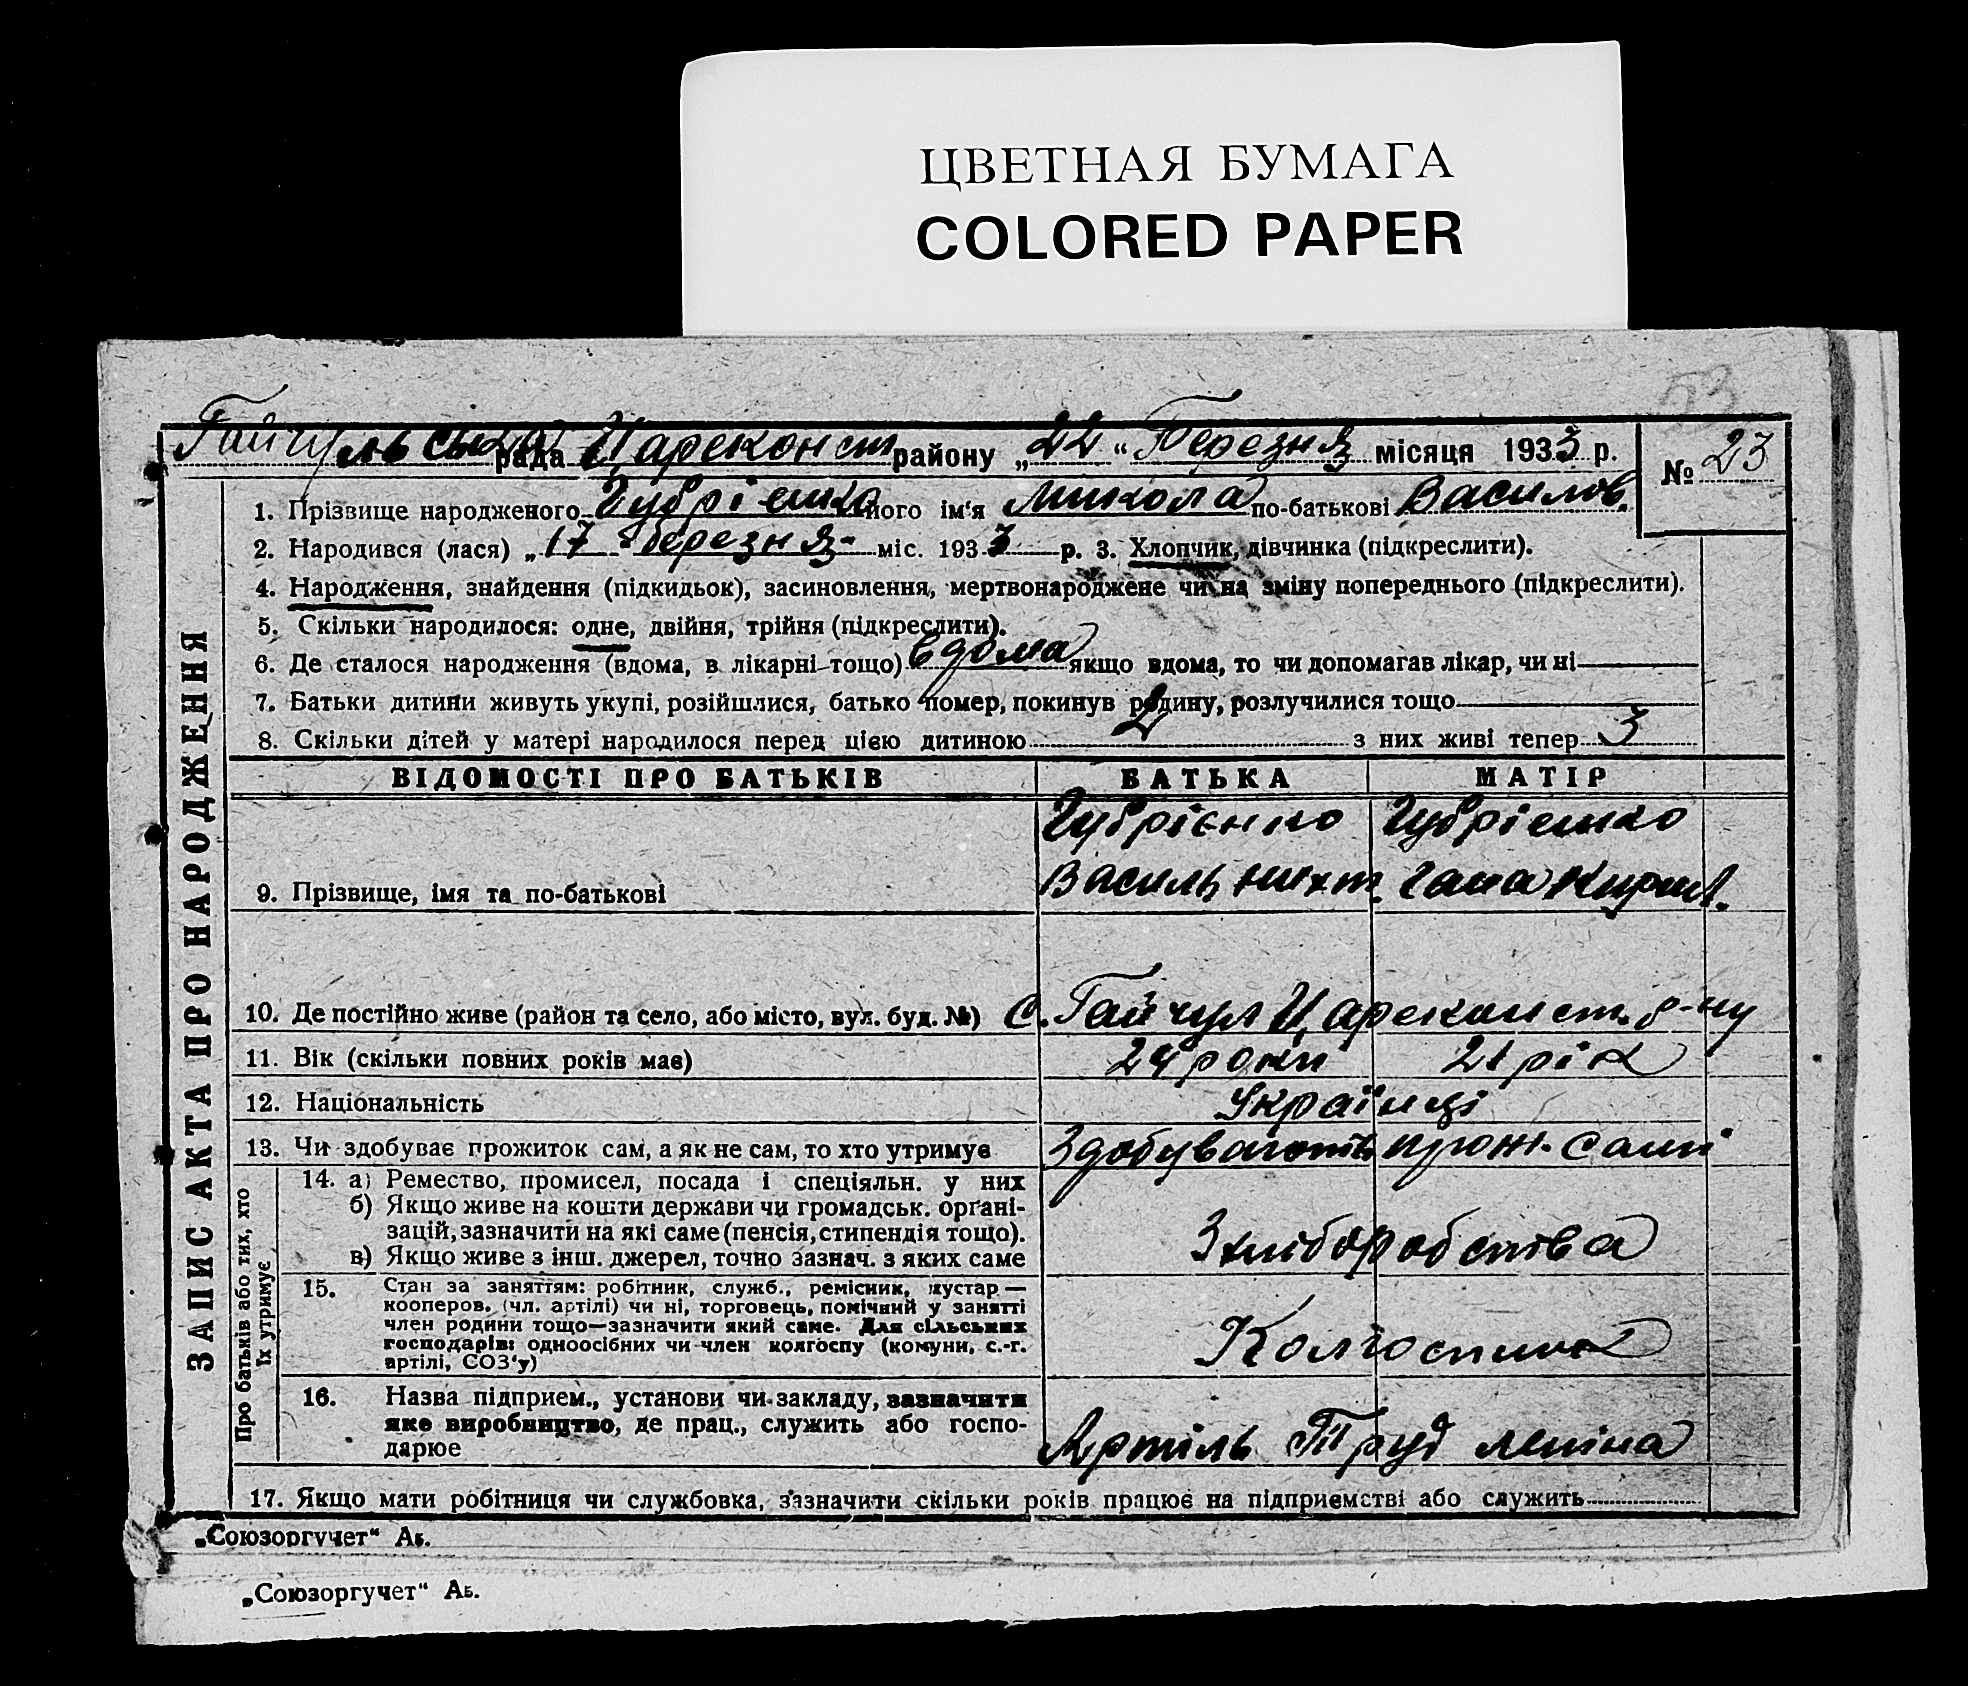 ЦВЕТНАЯ БУМАГА
COLORED PAPER
53
Гайчульська рада Цареконст району „22“ Березня місяця 1933 р.
№ 23
ЗАПИС АКТА ПРО НАРОДЖЕННЯ
1. Прізвище народженого Губрієнко його ім'я Микола по-батькові Василов.
2. Народився (лася) „17“ березня міс. 1933 р. 3. Хлопчик, дівчинка (підкреслити).
4. Народження, знайдення (підкидьок), засиновлення, мертвонароджене чи на зміну попереднього (підкреслити).
5. Скільки народилося: одне, двійня, трійня (підкреслити).
6. Де сталося народження (вдома, в лікарні тощо) вдома якщо вдома, то чи допомагав лікар, чи ні
7. Батьки дитини живуть укупі, розійшлися, батько помер, покинув родину, розлучилися тощо
8. Скільки дітей у матері народилося перед цією дитиною 2 з них живі тепер 3
ВІДОМОСТІ ПРО БАТЬКІВ БАТЬКА МАТІР
Губрієнко Губрієнко
9. Прізвище, імя та по-батькові Василь Гана Кирил.
10. Де постійно живе (район та село, або місто, вул. буд. №) С. Гайчул Цареконст. р-ну
11. Вік (скільки повних років має) 24 роки 21 рік
12. Національність Українці
13. Чи здобуває прожиток сам, а як не сам, то хто утримує Здобувають прож. самі
Про батьків або тих, хто
їх утримує
14. а) Ремество, промисел, посада і спеціяльн. у них
б) Якщо живе на кошти держави чи громадськ. органі-
зацій, зазначити на які саме (пенсія, стипендія тощо).
в) Якщо живе з інш. джерел, точно зазнач. з яких саме
З хліборобства
15. Стан за заняттям: робітник, служб., ремісник, кустар —
кооперов. (чл. артілі) чи ні, торговець, помічний у занятті
член родини тощо—зазначити який саме. Для сільських
господарів: одноосібних чи член колгоспу (комуни, с.-г.
артілі, СОЗ'у)
Колгоспник
16. Назва підприєм., установи чи закладу, зазначити
яке виробництво, де прац., служить або госпо-
дарює
Артіль Труд леніна
17. Якщо мати робітниця чи службовка, зазначити скільки років працює на підприємстві або служить
„Союзоргучет“ Аб.
„Союзоргучет“ Аб.